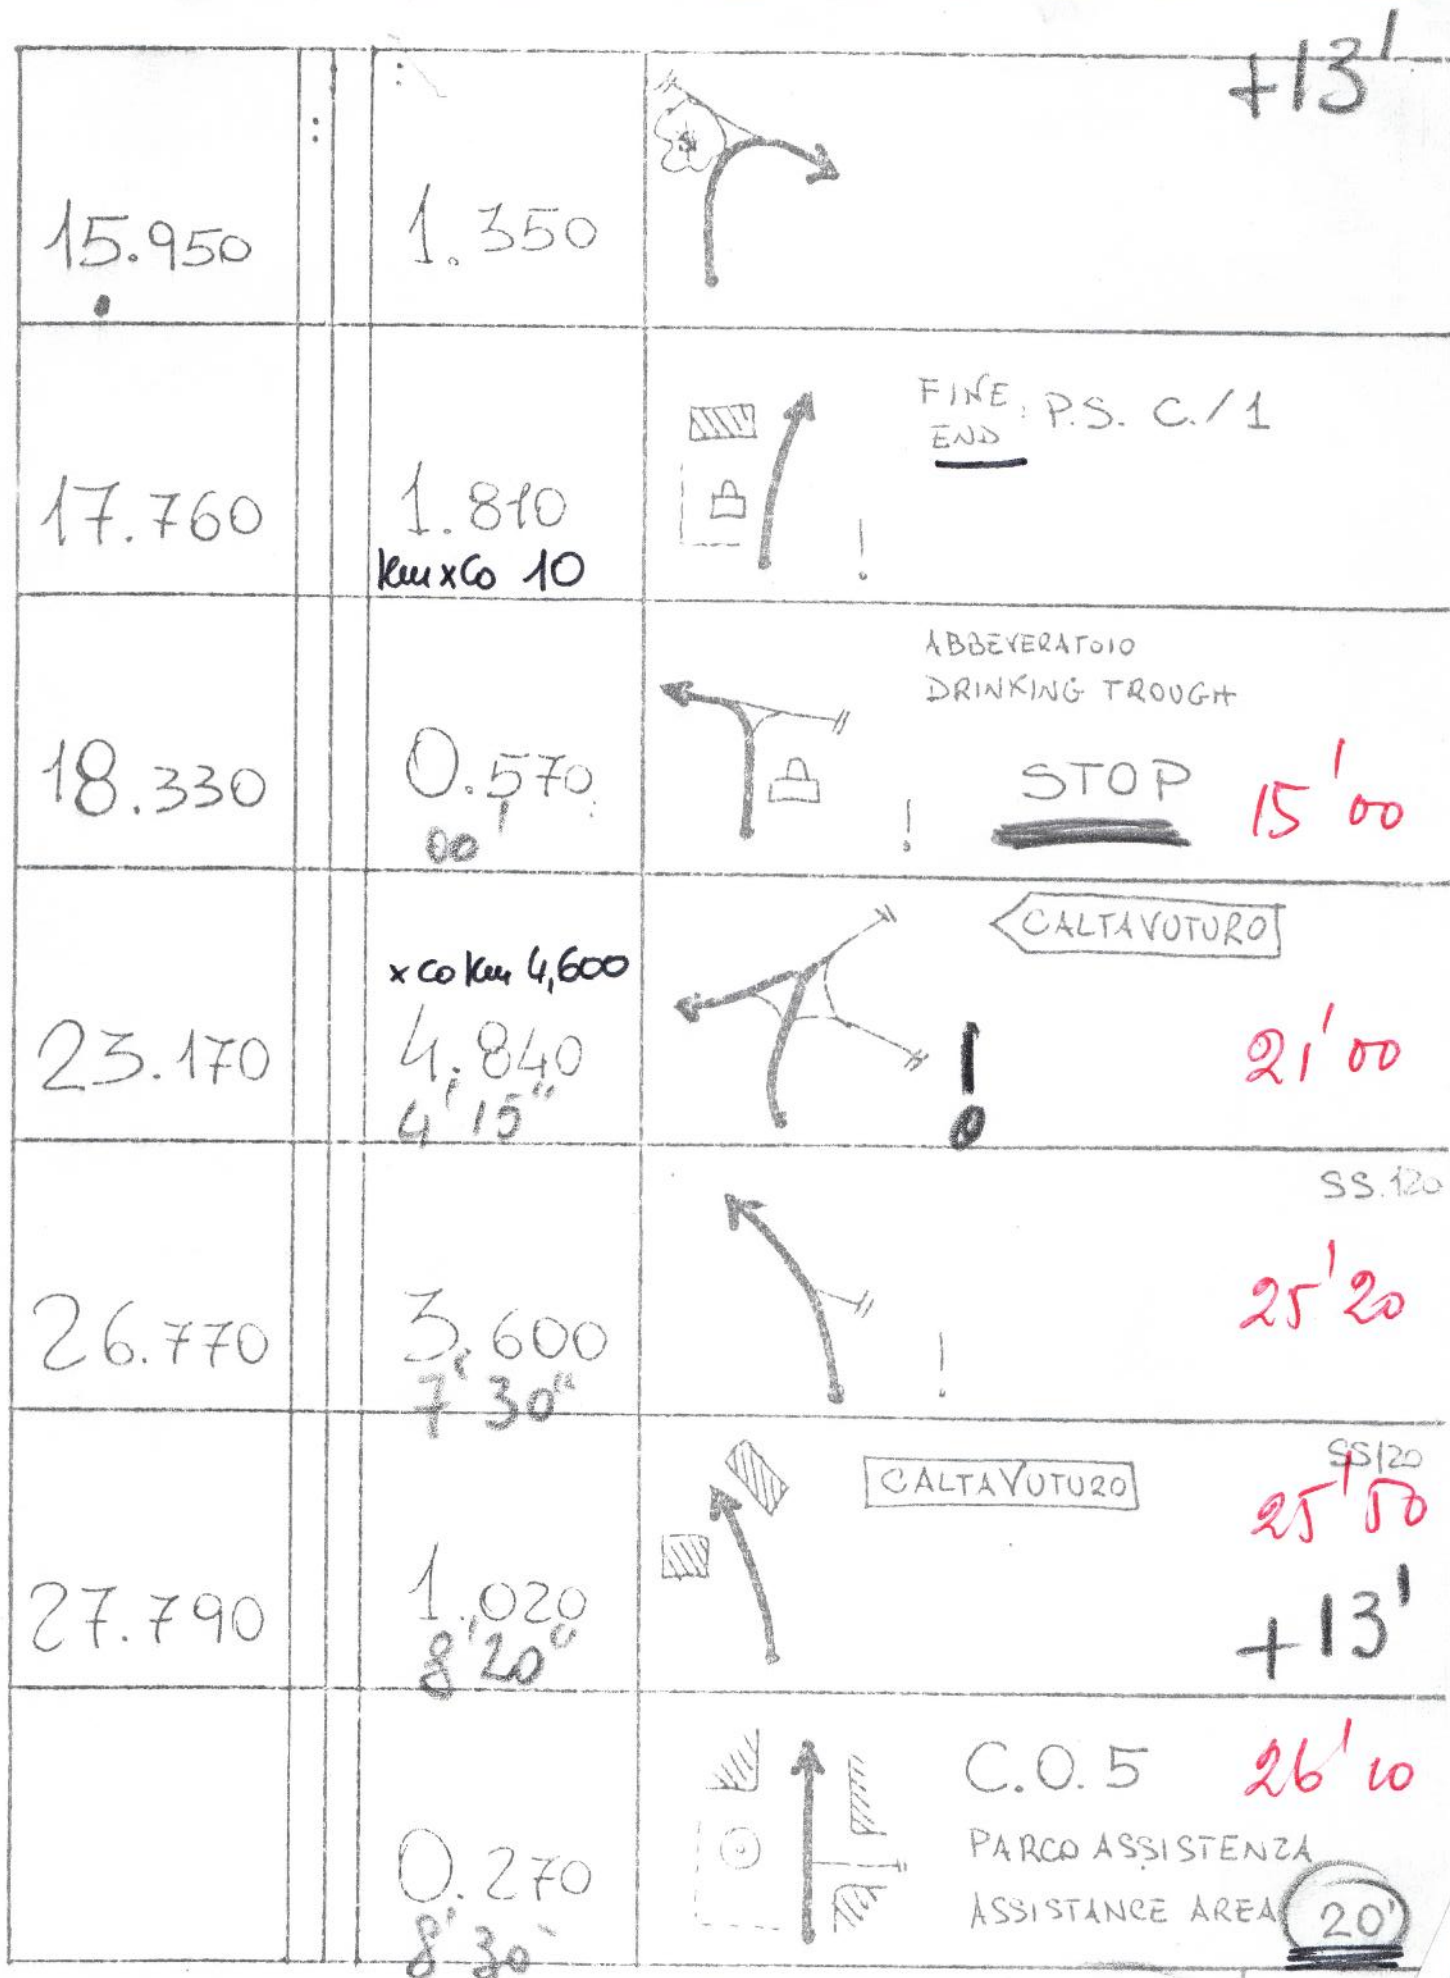 +13'
15.950
1.350
17.760
1.810
km x Co 10
FINE
END
P.S. C./1
18.330
0.570
00'
ABBEVERATOIO
DRINKING TROUGH
STOP
15'00
23.170
x co km 4,600
4.840
4' 15"
CALTAVUTURO
!
21'00
26.770
3.600
7' 30"
!
SS.120
25'20
27.790
1.020
8' 20"
CALTAVUTURO
SS120
25'50
+13'
0.270
8' 30
C.O.5
26'10
PARCO ASSISTENZA
ASSISTANCE AREA
20'